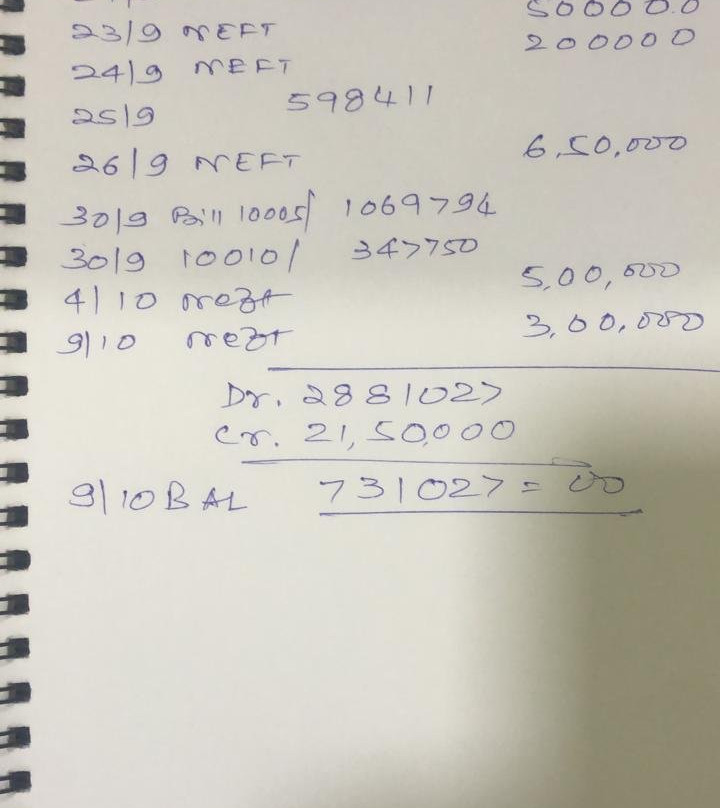 500000
23/9 NEFT 200000
24/9 NEFT
25/9 598411
26/9 NEFT 6,50,000
30/9 Bill 10005/ 1069794
30/9 10010/ 347750
4/10 NEFT 5,00,000
9/10 NEFT 3,00,000
Dr. 2881027
Cr. 21,50,000
9/10 BAL 731027=00